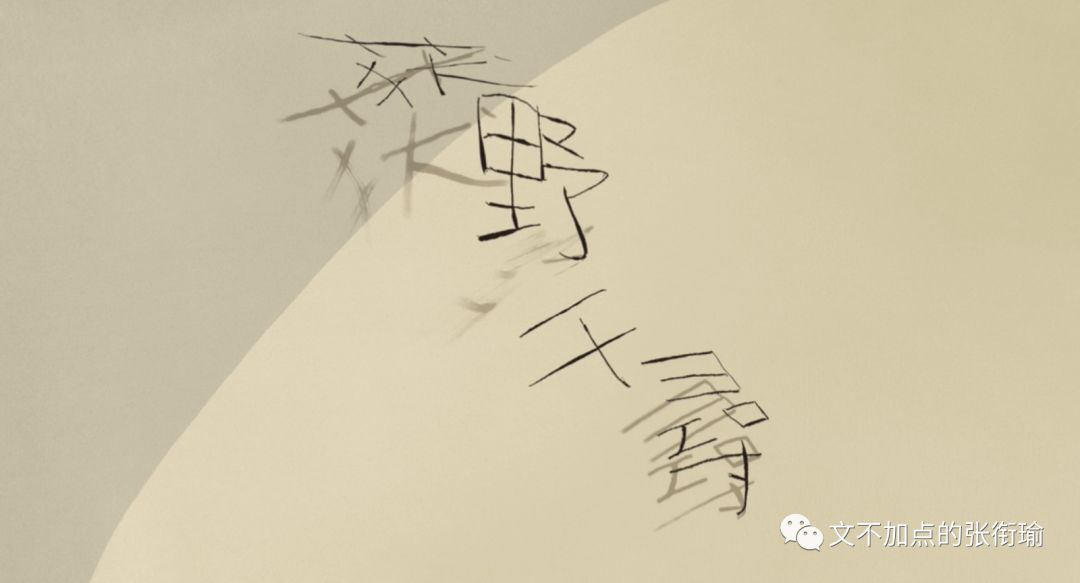 荻野千尋
文不加点的张衔瑜